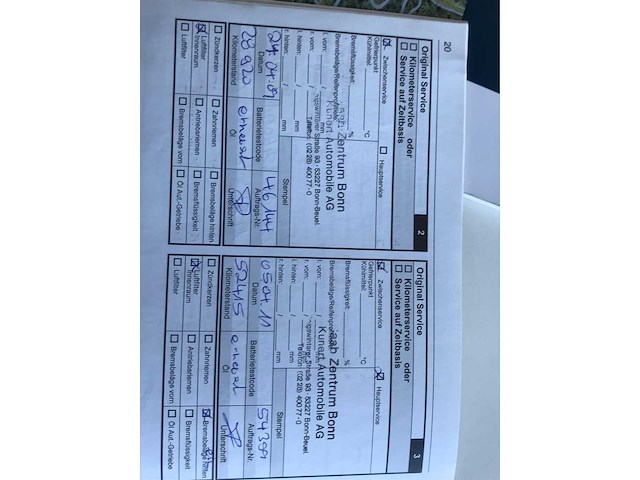 20
Original Service
2
Kilometerservice oder
Service auf Zeitbasis
Zwischenservice
Hauptservice
Gefrierpunkt
Kühlmittel:
°C
Bremsflüssigkeit:
%
Bremsbeläge/Reifenprofiltiefe
l. vorn: / mm
r. vorn: /
l. hinten: / mm
r. hinten: /
Zentrum Bonn
Kunert Automobile AG
Straße 93 · 53227 Bonn-Beuel
Telefon (02 28) 400 77-0
Stempel
24.04.09
46144
Datum
Batterietestcode
Auftrags-Nr.
28920
erneuert
Kilometerstand
Öl
Unterschrift
Zündkerzen
Zahnriemen
Bremsbeläge hinten
Luftfilter Innenraum
Antriebsriemen
Bremsflüssigkeit
Luftfilter
Bremsbeläge vorn
Öl Aut.-Getriebe
Original Service
3
Kilometerservice oder
Service auf Zeitbasis
Zwischenservice
Hauptservice
Gefrierpunkt
Kühlmittel:
°C
Bremsflüssigkeit:
%
Bremsbeläge/Reifenprofiltiefe
l. vorn: / mm
r. vorn: /
l. hinten: / mm
r. hinten: /
Zentrum Bonn
Kunert Automobile AG
Straße 93 · 53227 Bonn-Beuel
Telefon (02 28) 400 77-0
Stempel
05.04.11
54309
Datum
Batterietestcode
Auftrags-Nr.
52415
erneuert
Kilometerstand
Öl
Unterschrift
Zündkerzen
Zahnriemen
Bremsbeläge hinten
Luftfilter Innenraum
Antriebsriemen
Bremsflüssigkeit
Luftfilter
Bremsbeläge vorn
Öl Aut.-Getriebe